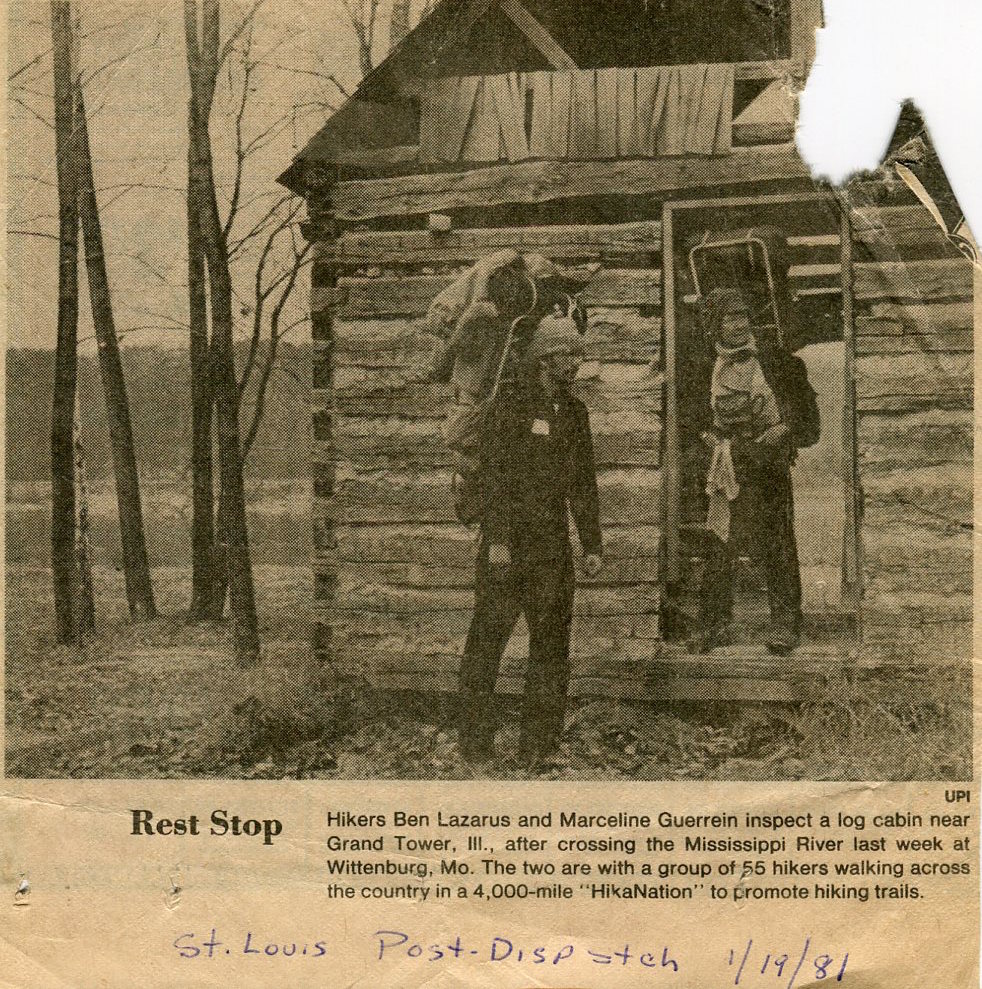 UPI
Rest Stop
Hikers Ben Lazarus and Marceline Guerrein inspect a log cabin near
Grand Tower, Ill., after crossing the Mississippi River last week at
Wittenburg, Mo. The two are with a group of 55 hikers walking across
the country in a 4,000-mile "HikaNation" to promote hiking trails.
St. Louis Post-Dispatch 1/19/81